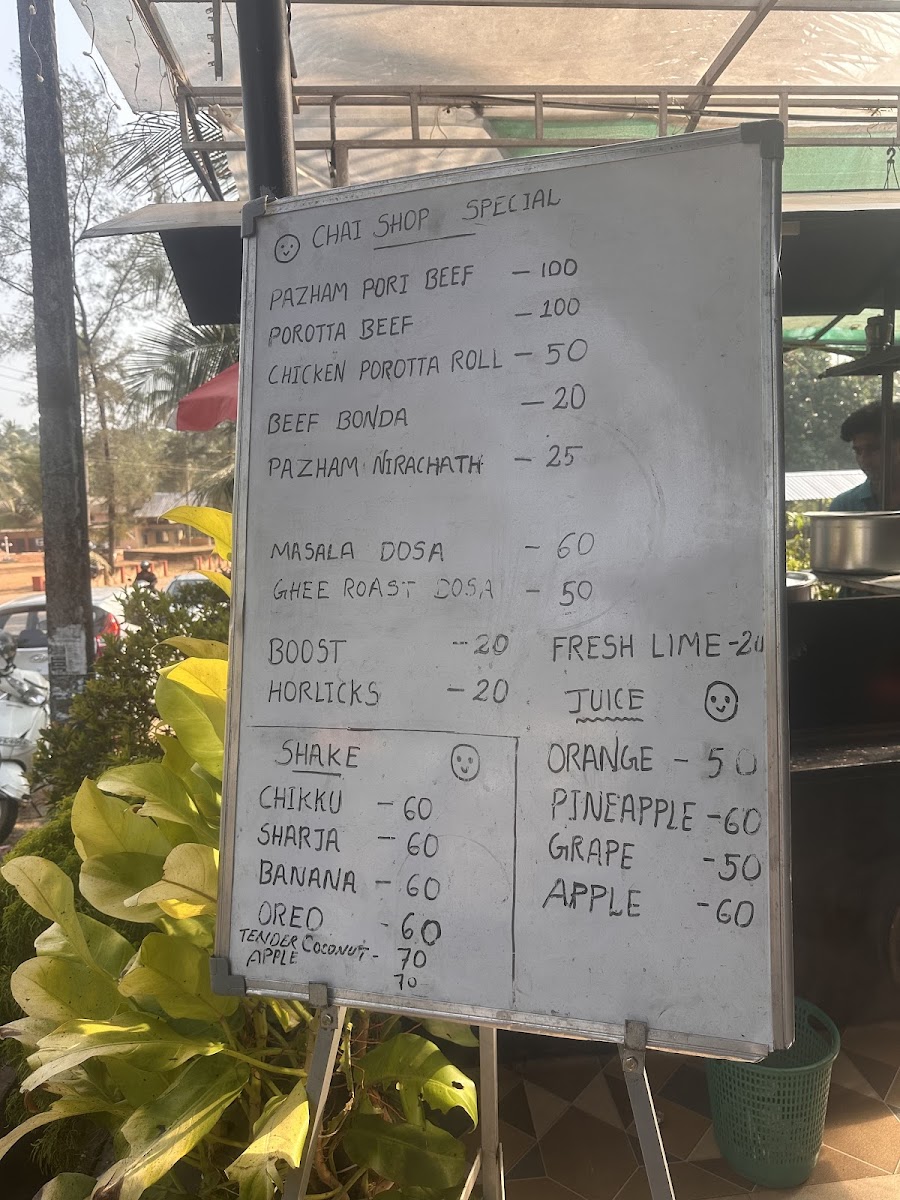 CHAI SHOP SPECIAL
PAZHAM PORI BEEF - 100
POROTTA BEEF - 100
CHICKEN POROTTA ROLL - 50
BEEF BONDA - 20
PAZHAM NIRACHATH - 25
MASALA DOSA - 60
GHEE ROAST DOSA - 50
BOOST - 20
HORLICKS - 20
SHAKE
CHIKKU - 60
SHARJA - 60
BANANA - 60
OREO - 60
TENDER COCONUT - 70
APPLE 70
FRESH LIME - 20
JUICE
ORANGE - 50
PINEAPPLE - 60
GRAPE - 50
APPLE - 60